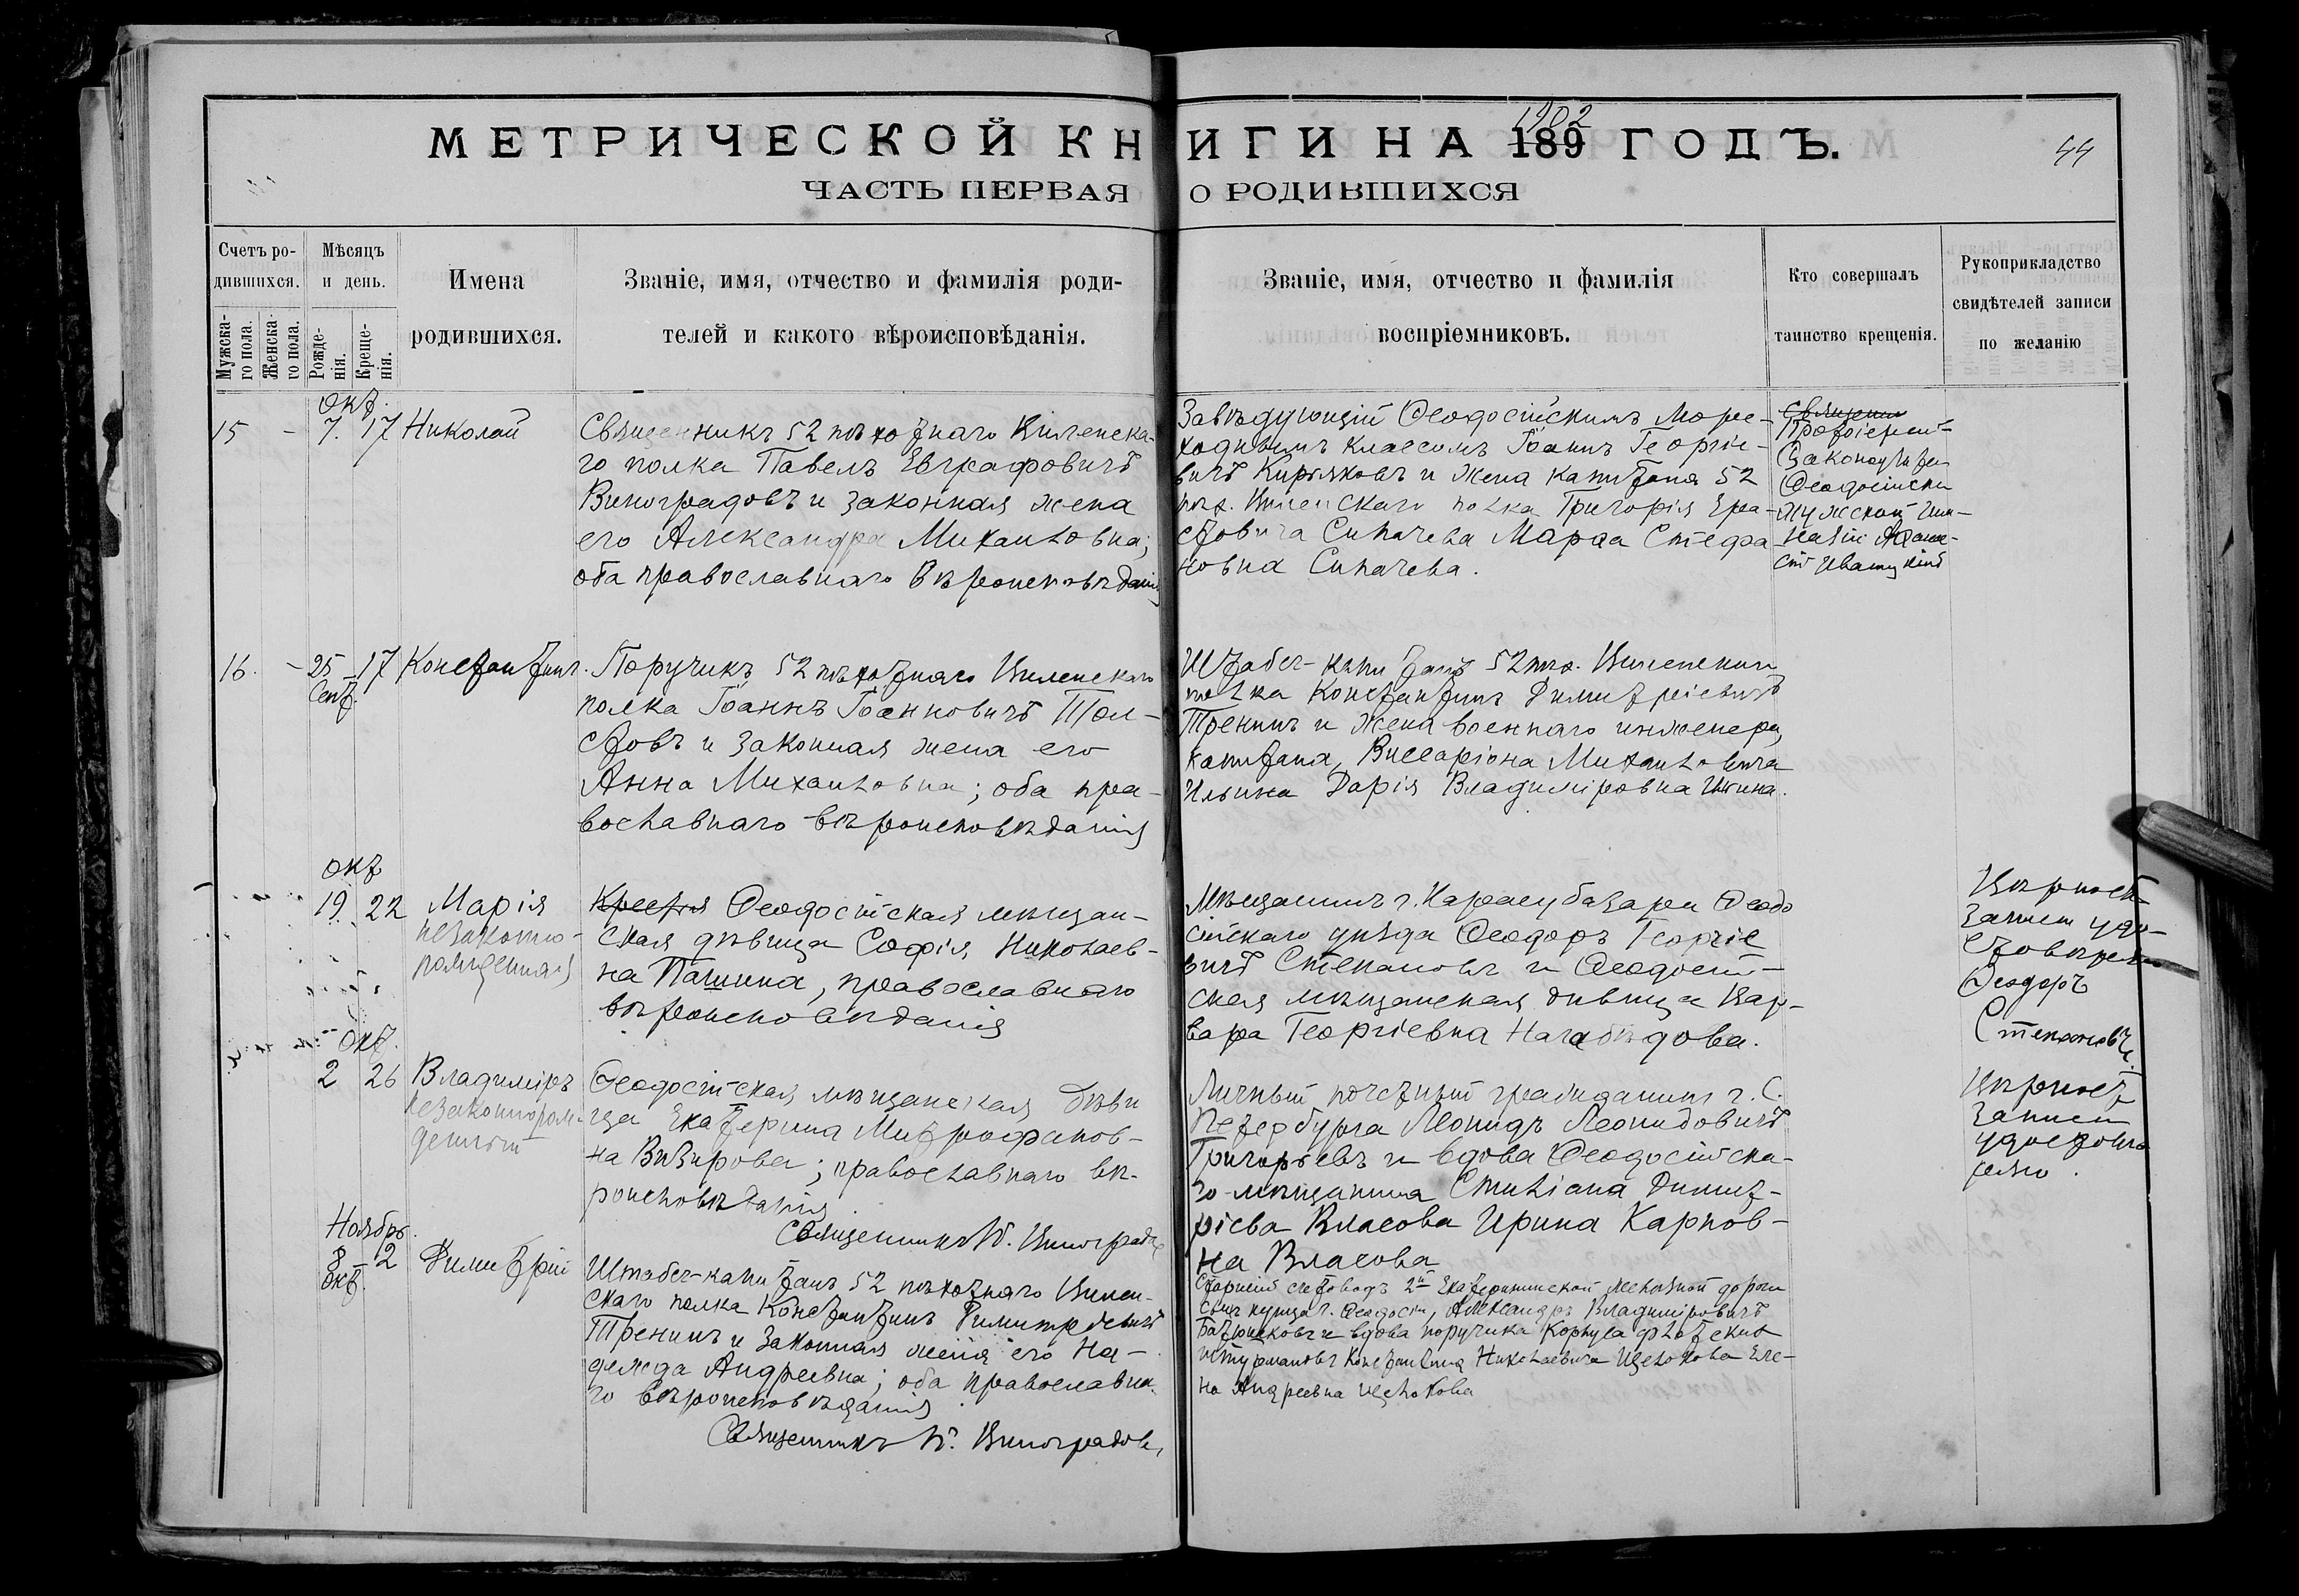 МЕТРИЧЕСКОЙ КНИГИ НА 189 ГОДЪ.
1902
44
ЧАСТЬ ПЕРВАЯ О РОДИВШИХСЯ
Счетъ ро-
дившихся.
Мужска-
го пола.
Женска-
го пола.
Мѣсяцъ
и день.
Рожде-
нія.
Креще-
нія.
Имена
родившихся.
Званіе, имя, отчество и фамилія роди-
телей и какого вѣроисповѣданія.
Званіе, имя, отчество и фамилія
воспріемниковъ.
Кто совершалъ
таинство крещенія.
Рукоприкладство
свидѣтелей записи
по желанію
Окт.
15 - 7. 17 Николай
Священникъ 52 пѣхотнаго Виленска-
го полка Павелъ Евграфовичъ
Виноградовъ и законная жена
его Александра Михаиловна;
оба православнаго вѣроисповѣданія
Завѣдующій Ѳеодосійскимъ Море-
ходнымъ классомъ Іоаннъ Георгіе-
вичъ Кирьяковъ и жена капитана 52
пѣх. Виленскаго полка Григорія Ера-
стовича Сипачева Марѳа Стефа-
новна Сипачева.
Священ
Протоіерей
Законоучитель
Ѳеодосійской
мужской гим-
назіи
16. - 25 17 Константинъ.
Сент.
Поручикъ 52 пѣхотнаго Виленскаго
полка Іоаннъ Іоанновичъ Тол-
стовъ и законная жена его
Анна Михаиловна; оба пра-
вославнаго вѣроисповѣданія
Штабсъ-капитанъ 52 пѣх. Виленскаго
полка Константинъ Димитріевичъ
Тренинъ и жена военнаго инженера,
капитана, Виссаріона Михаиловича
Ильина Дарія Владиміровна Ильина.
Окт
19. 22 Марія
незаконно-
рожденная
Крестья Ѳеодосійская мѣщан-
ская дѣвица Софія Николаев-
на Пашина, православнаго
вѣроисповѣданія
Мѣщанинъ г. Карасубазара Ѳеодо
сійскаго уѣзда Ѳеодоръ Георгіе
вичъ Степановъ и Ѳеодосій-
ская мѣщанская дѣвица Вар-
вара Георгіевна Нагабѣдова.
Вѣрность
записи удо-
стовѣряю
Ѳеодоръ
Степановъ.
Окт.
2 26 Владиміръ
незаконнорож-
денный
Ѳеодосійская мѣщанская дѣви
ца Екатерина Митрофанов-
на Визирова; православнаго вѣ-
роисповѣданія
Священникъ П. Виноградов
Личный почетный гражданинъ г. С.
Петербурга Леонидъ Леонидовичъ
Григорьевъ и вдова Ѳеодосійска-
го мѣщанина Емиліана Димит-
ріева Власова Ирина Карпов-
на Власова
Вѣрность
записи
удостовѣ
ряю.
Ноябрь.
8 2 Димитрій
Окт.
Штабсъ-капитанъ 52 пѣхотнаго Вилен-
скаго полка Константинъ Димитріевичъ
Тренинъ и законная жена его На-
дежда Андреевна; оба православна-
го вѣроисповѣданія
Священникъ П. Виноградовъ.
Старшій счетоводъ 2й Екатерининской желѣзной дороги
сынъ купца г. Ѳеодосіи, Александръ Владиміровичъ
Батюшковъ и вдова поручика Корпуса флотскихъ
штурмановъ Константина Николаевича Щелокова Еле-
на Андреевна Щелокова